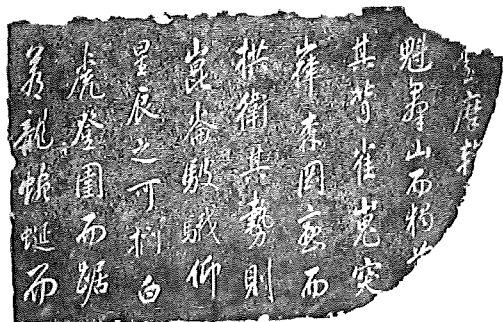 摩
魁羣山而獨
其背崔嵬突
崒森而
拱衛其勢則
崑崙駊騀仰
星辰之可捫白
虎敦圉而踞
蒼龍蜿蜒而